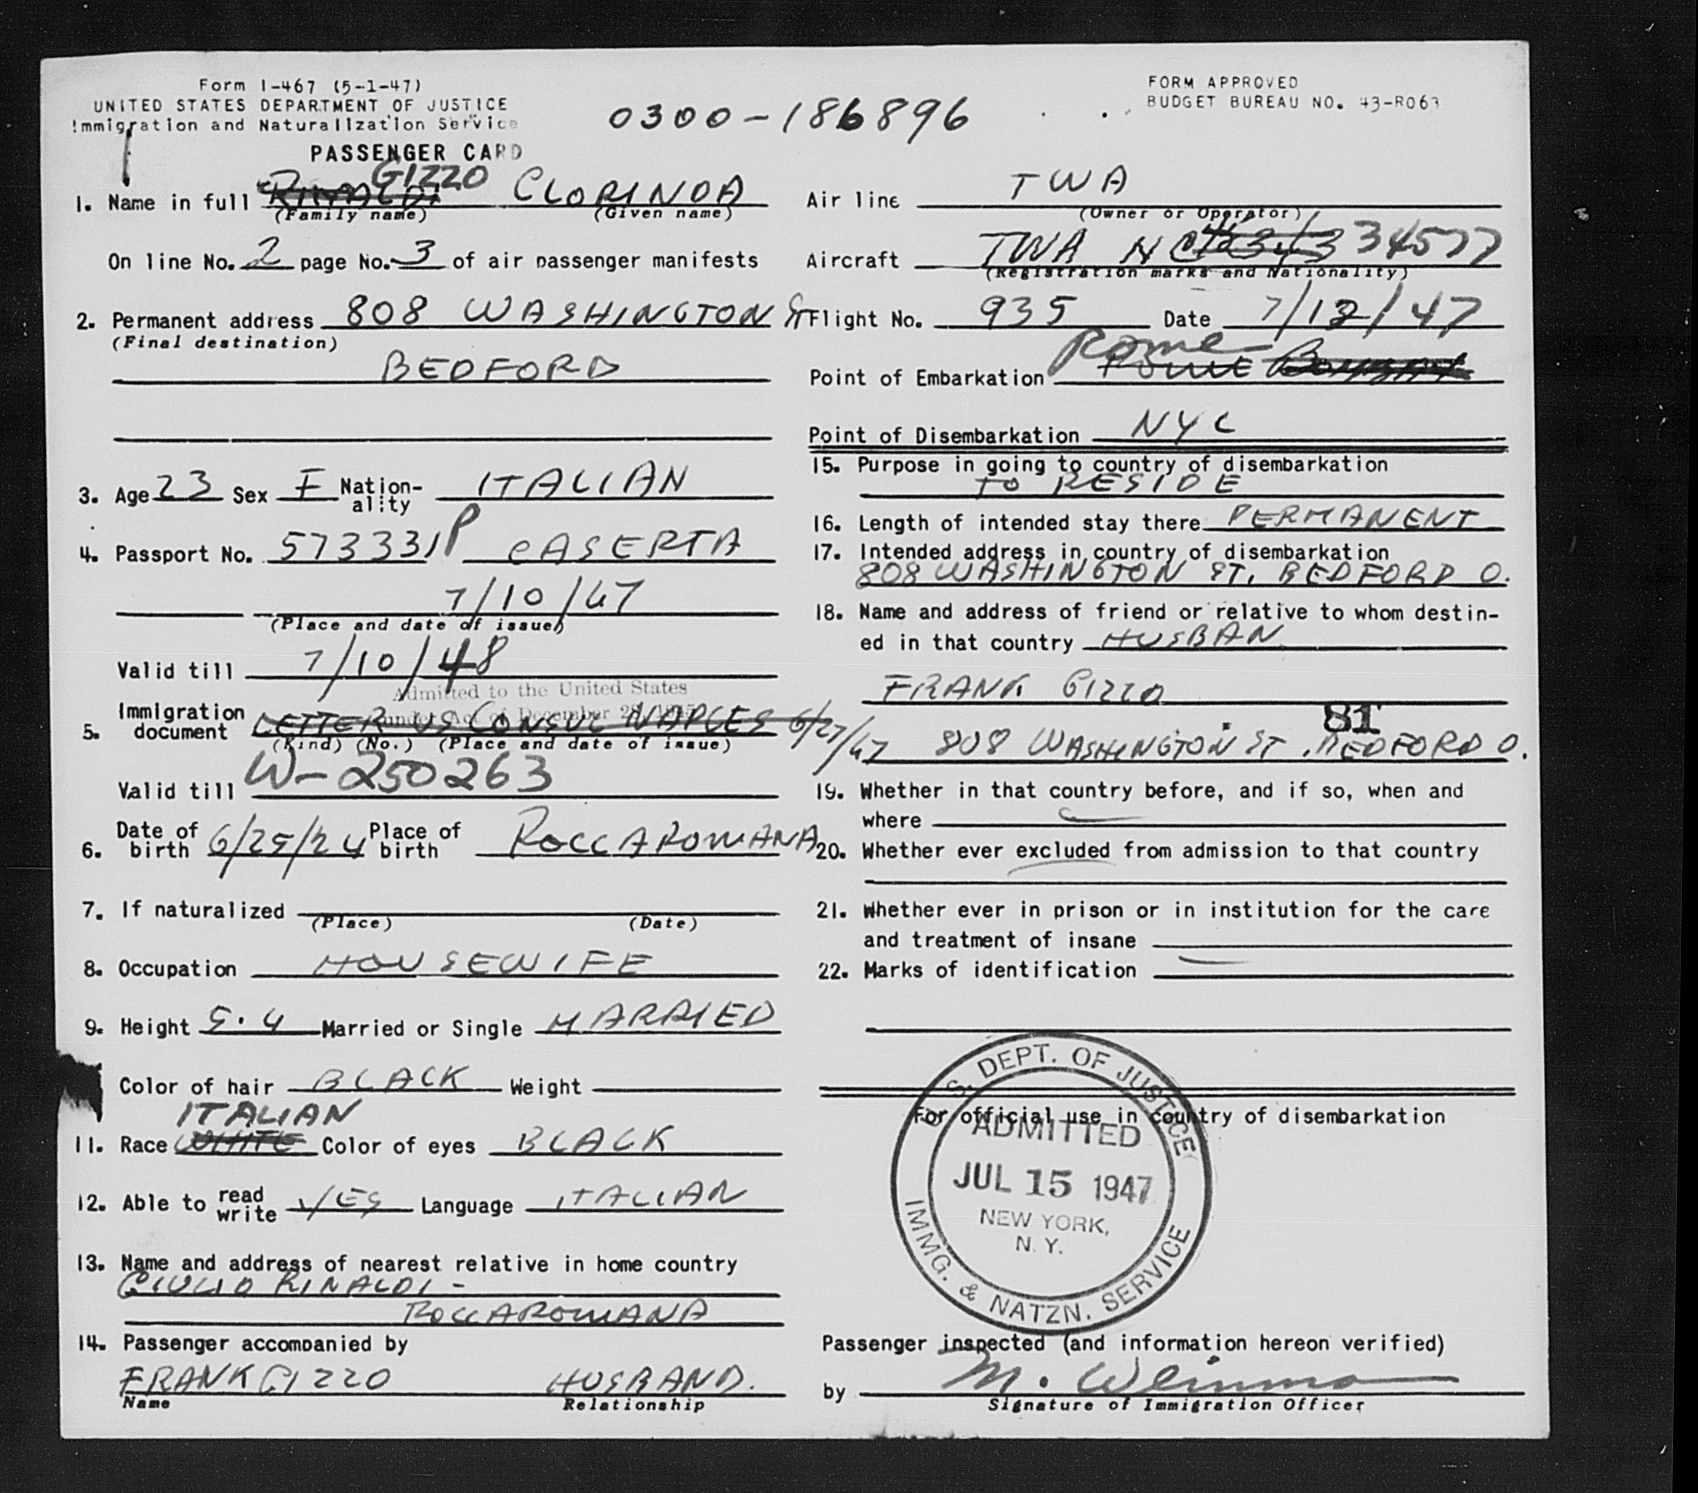 Form I-467 (5-1-47)
UNITED STATES DEPARTMENT OF JUSTICE
Immigration and Naturalization Service
0300-186896
FORM APPROVED
BUDGET BUREAU NO. 43-R063
PASSENGER CARD
GIZZO
1. Name in full RINALDI CLORINDA
(Family name) (Given name)
On line No. 2 page No. 3 of air passenger manifests
2. Permanent address 808 WASHINGTON ST
(Final destination)
BEDFORD
3. Age 23 Sex F Nation-ality ITALIAN
4. Passport No. 573331P CASERTA
7/10/47
(Place and date of issue)
Valid till 7/10/48
Admitted to the United States
under Act of December 28, 1945
5. Immigration document LETTER US CONSUL NAPLES 6/27/47
(Kind) (No.) (Place and date of issue)
W-250263
Valid till
6. Date of birth 6/25/24 Place of birth ROCCAROMANA
7. If naturalized
(Place) (Date)
8. Occupation HOUSEWIFE
9. Height 5.4 Married or Single MARRIED
Color of hair BLACK Weight
ITALIAN
11. Race WHITE Color of eyes BLACK
12. Able to read write YES Language ITALIAN
13. Name and address of nearest relative in home country
GIULIO RINALDI -
ROCCAROMANA
14. Passenger accompanied by
FRANK GIZZO HUSBAND.
Name Relationship
Air line TWA
(Owner or Operator)
Aircraft TWA NC 34577
(Registration marks and Nationality)
Flight No. 935 Date 7/12/47
Rome
Point of Embarkation Rome
Point of Disembarkation NYC
15. Purpose in going to country of disembarkation
TO RESIDE
16. Length of intended stay there PERMANENT
17. Intended address in country of disembarkation
808 WASHINGTON ST, BEDFORD O.
18. Name and address of friend or relative to whom destin-
ed in that country HUSBAN
FRANK GIZZO
81
808 WASHINGTON ST, BEDFORD O.
19. Whether in that country before, and if so, when and
where
20. Whether ever excluded from admission to that country
21. Whether ever in prison or in institution for the care
and treatment of insane
22. Marks of identification
For official use in country of disembarkation
U. S. DEPT. OF JUSTICE
ADMITTED
JUL 15 1947
NEW YORK,
N. Y.
IMMG. & NATZN. SERVICE
Passenger inspected (and information hereon verified)
by M.
Signature of Immigration Officer